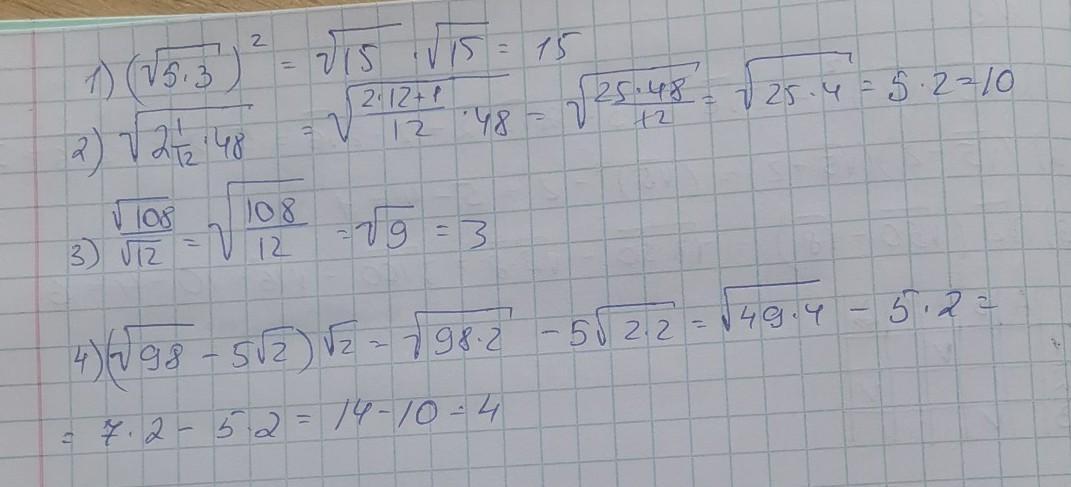 1) (√5·3)² = √15 · √15 = 15
2) √2 1/12 · 48 = √(2·12+1)/12 · 48 = √(25·48)/12 = √25·4 = 5·2=10
3) √108/√12 = √108/12 = √9 = 3
4) (√98 - 5√2)√2 = √98·2 - 5√2·2 = √49·4 - 5·2 =
= 7·2 - 5·2 = 14-10=4